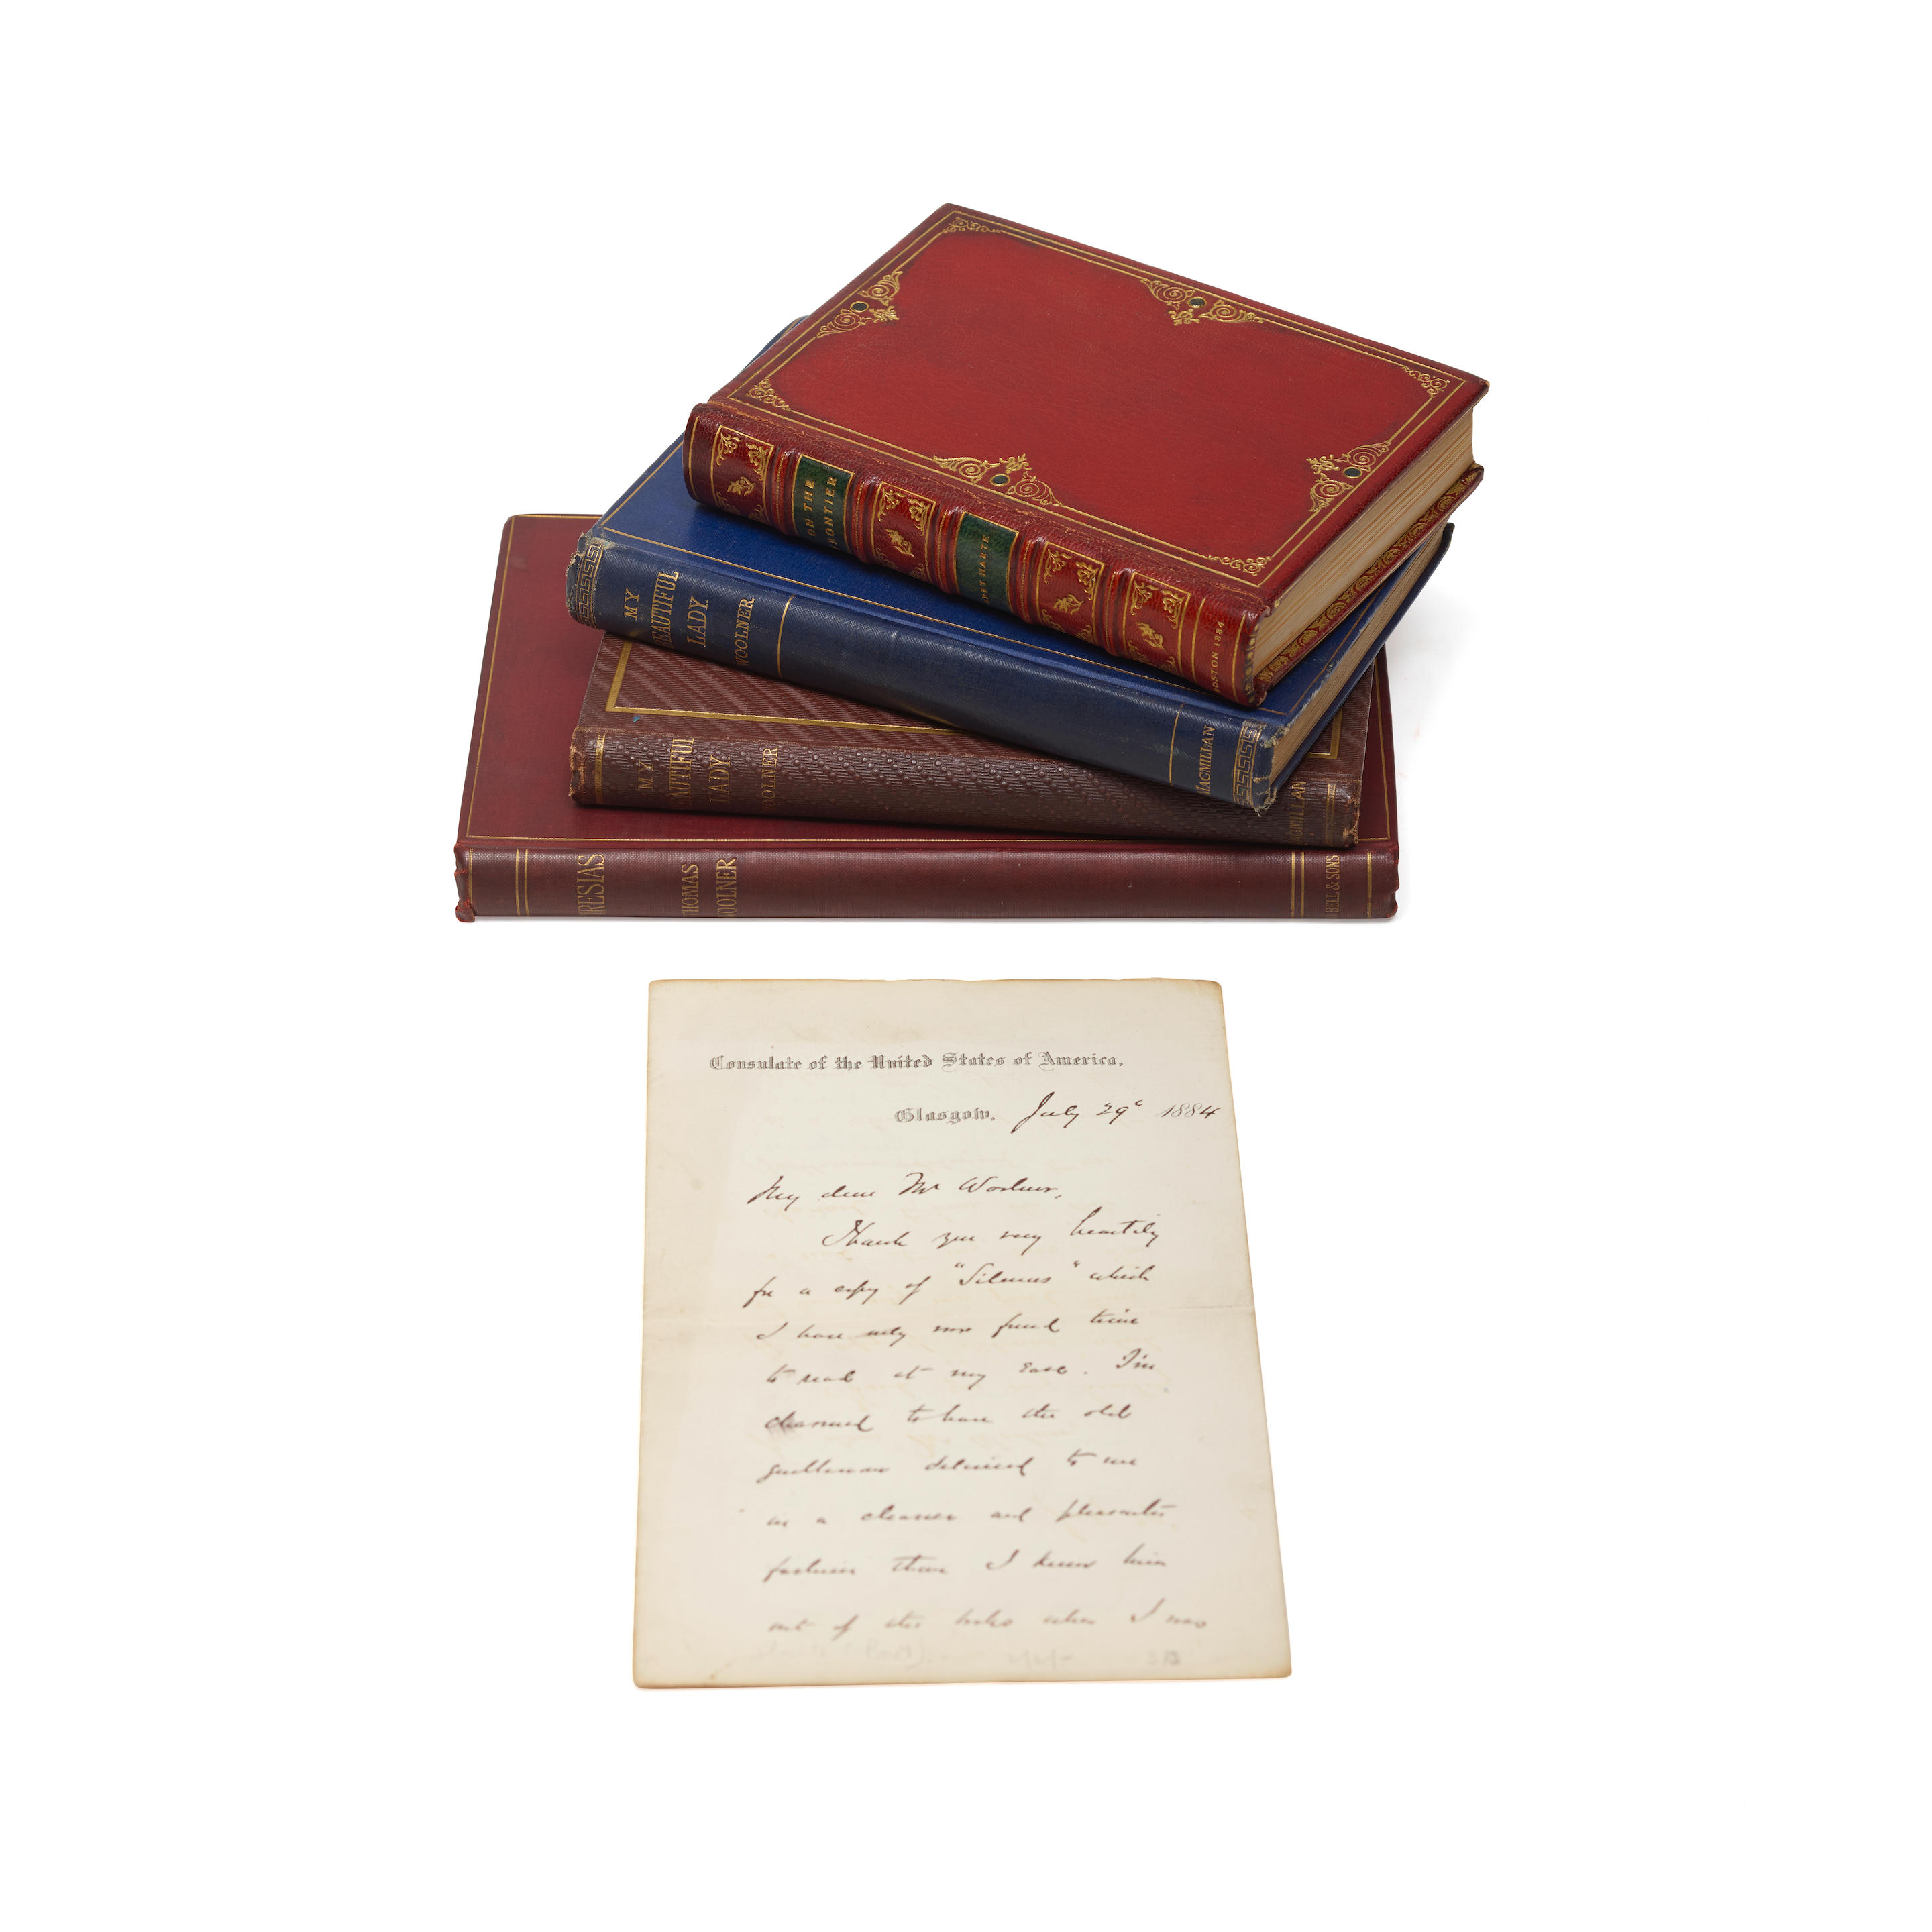 ON THE
FRONTIER
BRET HARTE
BOSTON 1884
MY
BEAUTIFUL
LADY
WOOLNER
MACMILLAN
MY
BEAUTIFUL
LADY
WOOLNER
MACMILLAN
TIRESIAS
THOMAS
WOOLNER
BELL & SONS
Consulate of the United States of America,
Glasgow, July 29 1884
My dear Mr Woolner,
Thank you very heartily
for a copy of "Silenus" which
I have only now found time
to read at my ease. I'm
charmed to have the old
gentleman delivered to me
in a cleaner and pleasanter
fashion than I knew him
out of the books when I was